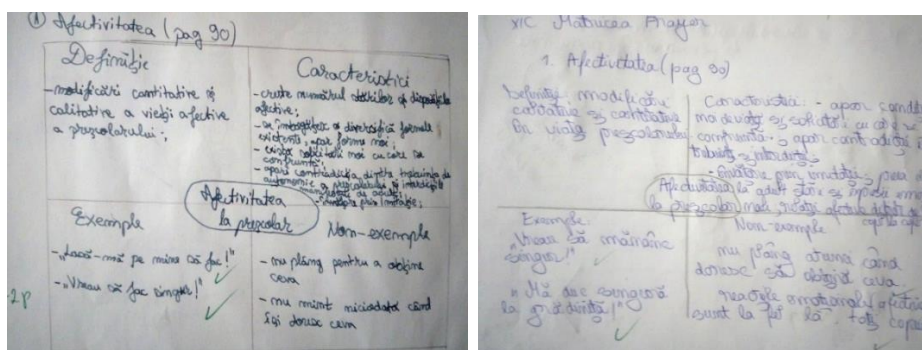 ① Afectivitatea (pag 90)
Definiție
- modificări cantitative și
calitative a vieții afective
a preșcolarului;
Caracteristici
- crește numărul stărilor și dispozițiilor
afective;
- se îmbogățesc și diversifică formele
existente, apar forme noi;
- există solicitări noi cu care se
confruntă;
- apare contradicția dintre trebuința de
autonomie a preșcolarului și interdicțiile
de adulți;
prin imitație;
Afectivitatea
la preșcolar
Exemple
- „Lasă-mă pe mine să fac!"
- „Vreau să fac singur!"
2p
Non-exemple
- nu plâng pentru a obține
ceva
- nu mint niciodată când
își doresc ceva
Matricea Frayer
1. Afectivitatea (pag 90)
Definiție: modificări
calitative și cantitative
în viața preșcolarului
Caracteristici: - apar
noi și solicitări cu care se
confruntă; apar contradicții
și interdicții;
- învățare prin imitație, prin
Afectivitatea
la preșcolar
Exemple:
„Vreau să mănânc
singur!"
„Mă duc singură
la grădiniță!"
Non-exemple
nu plâng atunci când
doresc să obțină ceva
reacțiile emoționale afective
sunt la fel la toți copiii